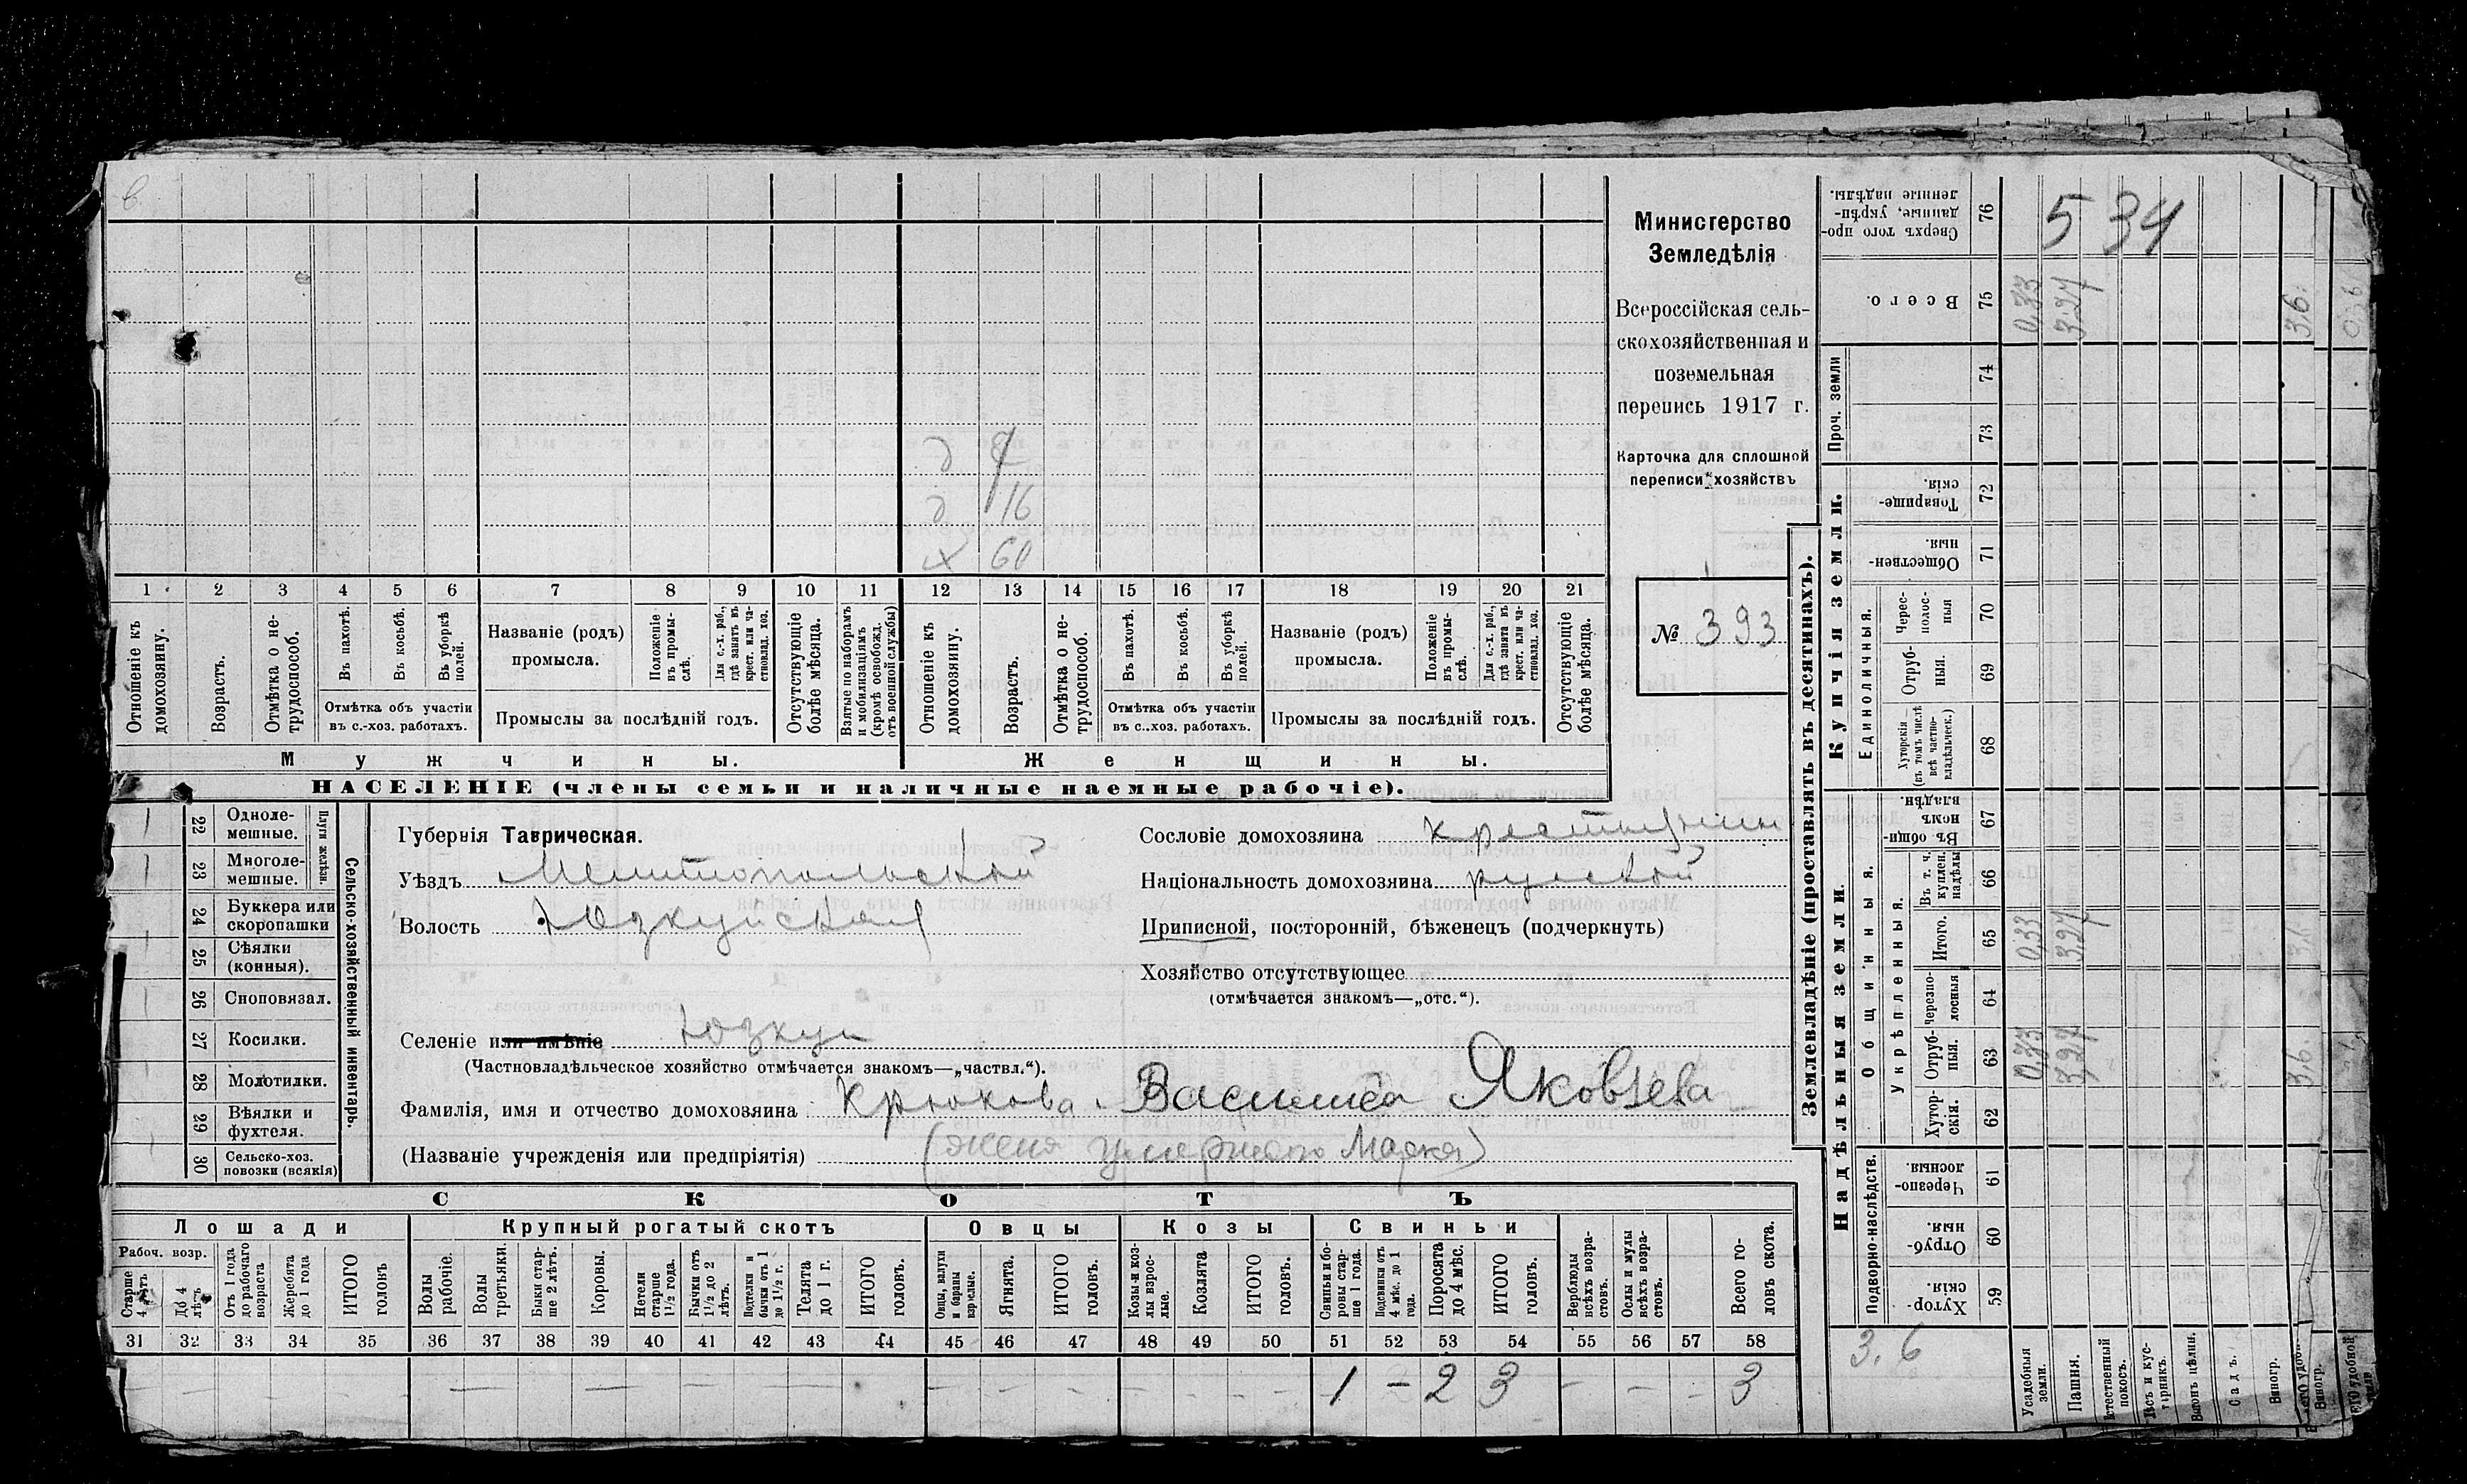 5 34
Министерство
Земледѣлія
Всероссійская сель-
скохозяйственная и
поземельная
перепись 1917 г.
Карточка для сплошной
переписи хозяйствъ
№ 393
д 7
д 16
х 60
1 2 3 4 5 6 7 8 9 10 11 12 13 14 15 16 17 18 19 20 21
Отношеніе къ домохозяину.
Возрастъ.
Отмѣтка о не-трудоспособ.
Въ пахотѣ.
Въ косьбѣ.
Въ уборкѣ полей.
Отмѣтка объ участіи
въ с.-хоз. работахъ.
Названіе (родъ)
промысла.
Положеніе въ промы-слѣ.
Для с.-х. раб., гдѣ занятъ въ крест. или ча-стновлад. хоз.
Промыслы за послѣдній годъ.
Отсутствующіе болѣе мѣсяца.
Взятые по наборамъ и мобилизаціямъ (кромѣ освобожд. отъ военной службы)
Отношеніе къ домохозяину.
Возрастъ.
Отмѣтка о не-трудоспособ.
Въ пахотѣ.
Въ косьбѣ.
Въ уборкѣ полей.
Отмѣтка объ участіи
въ с.-хоз. работахъ.
Названіе (родъ)
промысла.
Положеніе въ промы-слѣ.
Для с.-х. раб., гдѣ занята въ крест. или ча-стновлад. хоз.
Промыслы за послѣдній годъ.
Отсутствующіе болѣе мѣсяца.
Мужчины.
Женщины.
НАСЕЛЕНІЕ (члены семьи и наличные наемные рабочіе).
Сельско-хозяйственный инвентарь.
Плуги желѣзн.
22 Одноле-мешные.
23 Многоле-мешные.
24 Буккера или скоропашки
25 Сѣялки (конныя).
26 Сноповязал.
27 Косилки.
28 Молотилки.
29 Вѣялки и фухтеля.
30 Сельско-хоз. повозки (всякія)
Губернія Таврическая.
Уѣздъ Мелитопольской
Волость Юзкуйская
Селеніе или имѣніе Юзкуи
(Частновладѣльческое хозяйство отмѣчается знакомъ—„частвл.“).
Фамилія, имя и отчество домохозяина Крюкова Василиса Яковлева
(Названіе учрежденія или предпріятія) (жена умершаго Марка)
Сословіе домохозяина крестьянин
Національность домохозяина русской
Приписной, посторонній, бѣженецъ (подчеркнуть)
Хозяйство отсутствующее
(отмѣчается знакомъ—„отс.“).
СКОТЪ
Лошади
Крупный рогатый скотъ
Овцы
Козы
Свиньи
Рабоч. возр.
Старше 4 лѣтъ
До 4 лѣтъ
Отъ 1 года до рабочаго возраста
Жеребята до 1 года
ИТОГО головъ
Волы рабочіе.
Волы третьяки.
Быки стар-ше 2 лѣтъ.
Коровы.
Нетели старше 1½ года.
Бычки отъ 1½ до 2 лѣтъ.
Подтелки и бычки отъ 1 до 1½ г.
Телята до 1 г.
ИТОГО головъ.
Овцы, валухи и бараны взрослые.
Ягнята.
ИТОГО головъ.
Козы и коз-лы взрос-лые.
Козлята
ИТОГО головъ.
Свиньи и бо-ровы стар-ше 1 года.
Подсвинки отъ 4 мѣс. до 1 года.
Поросята до 4 мѣс.
ИТОГО головъ.
Верблюды всѣхъ возра-стовъ.
Ослы и мулы всѣхъ возра-стовъ.
Всего го-ловъ скота.
31 32 33 34 35 36 37 38 39 40 41 42 43 44 45 46 47 48 49 50 51 52 53 54 55 56 57 58
1 – 2 3 – – – 3
Землевладѣніе (проставлять въ десятинахъ).
Надѣльныя земли.
Купчія земли.
Проч. земли
Подворно-наслѣдств.
Общинныя.
Укрѣпленныя.
Единоличныя.
Сверхъ того про-данные, укрѣп-ленные надѣлы. 76
Всего. 75 0,33 3.27 3,6.
74
73
Товарище-скія. 72
Обществен-ныя. 71
Черес-полос-ныя 70
Отруб-ныя. 69
Хуторскія (въ томъ числѣ всѣ частно-владѣльческ.) 68
Въ общин-номъ владѣн. 67
Въ т. ч. куплен. надѣлы 66
Итого. 65 0,33 3,27
Черезпо-лосныя 64
Отруб-ныя. 63 0,33 3,27 3,6.
Хутор-скія. 62
Черезпо-лосныя 61
Отруб-ныя. 60
Хутор-скія 59
3.6
Усадебныя земли.
Пашня.
Естественный покосъ.
Лѣсъ и кус-тарникъ.
Выгонъ цѣлин.
Садъ.
Виногр.